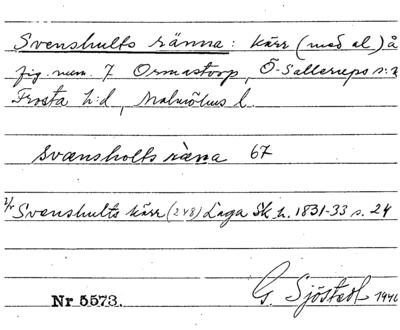 Svenshults ränna: Kärr (med al) å
fig. num. 7 Ormastorp, Ö. Sallerups s:n
Frosta h:d, Malmöhus l.
Svænsholts ræna 67
Svenshults kärr (248) Laga Sk. h. 1831-33 s. 24
Nr 5573. G. Sjöstedt 1940